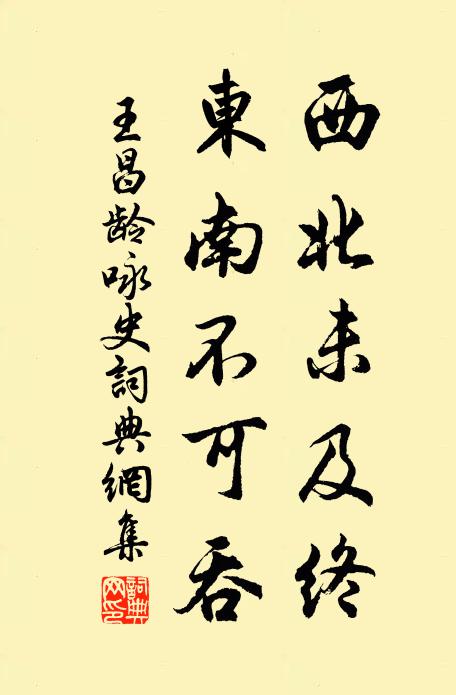 西北未及终
東南不可吞
王昌龄咏史詞典網集
詞典
网印